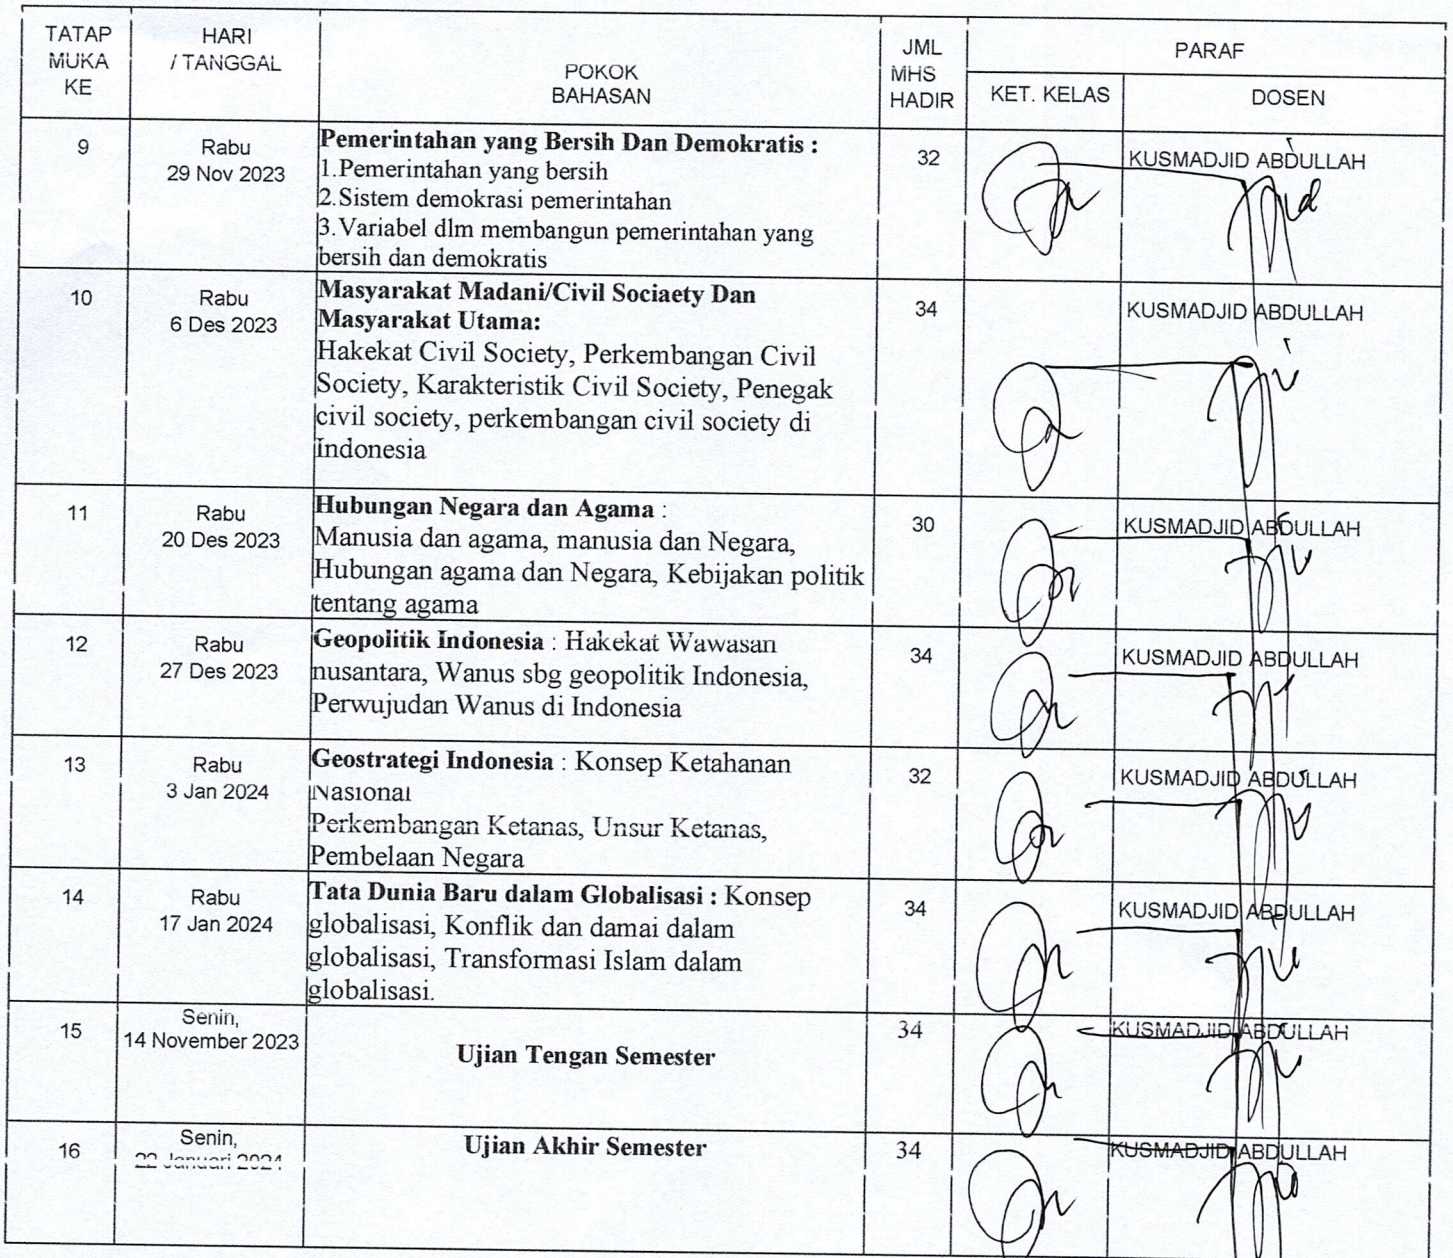 TATAP
MUKA
KE
HARI
/ TANGGAL
POKOK
BAHASAN
JML
MHS
HADIR
PARAF
KET. KELAS
DOSEN
9
Rabu
29 Nov 2023
Pemerintahan yang Bersih Dan Demokratis :
1.Pemerintahan yang bersih
2.Sistem demokrasi pemerintahan
3.Variabel dlm membangun pemerintahan yang
bersih dan demokratis
32
KUSMADJID ABDULLAH
10
Rabu
6 Des 2023
Masyarakat Madani/Civil Sociaety Dan
Masyarakat Utama:
Hakekat Civil Society, Perkembangan Civil
Society, Karakteristik Civil Society, Penegak
civil society, perkembangan civil society di
Indonesia
34
KUSMADJID ABDULLAH
11
Rabu
20 Des 2023
Hubungan Negara dan Agama :
Manusia dan agama, manusia dan Negara,
Hubungan agama dan Negara, Kebijakan politik
tentang agama
30
KUSMADJID ABDULLAH
12
Rabu
27 Des 2023
Geopolitik Indonesia : Hakekat Wawasan
nusantara, Wanus sbg geopolitik Indonesia,
Perwujudan Wanus di Indonesia
34
KUSMADJID ABDULLAH
13
Rabu
3 Jan 2024
Geostrategi Indonesia : Konsep Ketahanan
Nasional
Perkembangan Ketanas, Unsur Ketanas,
Pembelaan Negara
32
KUSMADJID ABDULLAH
14
Rabu
17 Jan 2024
Tata Dunia Baru dalam Globalisasi : Konsep
globalisasi, Konflik dan damai dalam
globalisasi, Transformasi Islam dalam
globalisasi.
34
KUSMADJID ABDULLAH
15
Senin,
14 November 2023
Ujian Tengan Semester
34
KUSMADJID ABDULLAH
16
Senin,
22 Januari 2024
Ujian Akhir Semester
34
KUSMADJID ABDULLAH